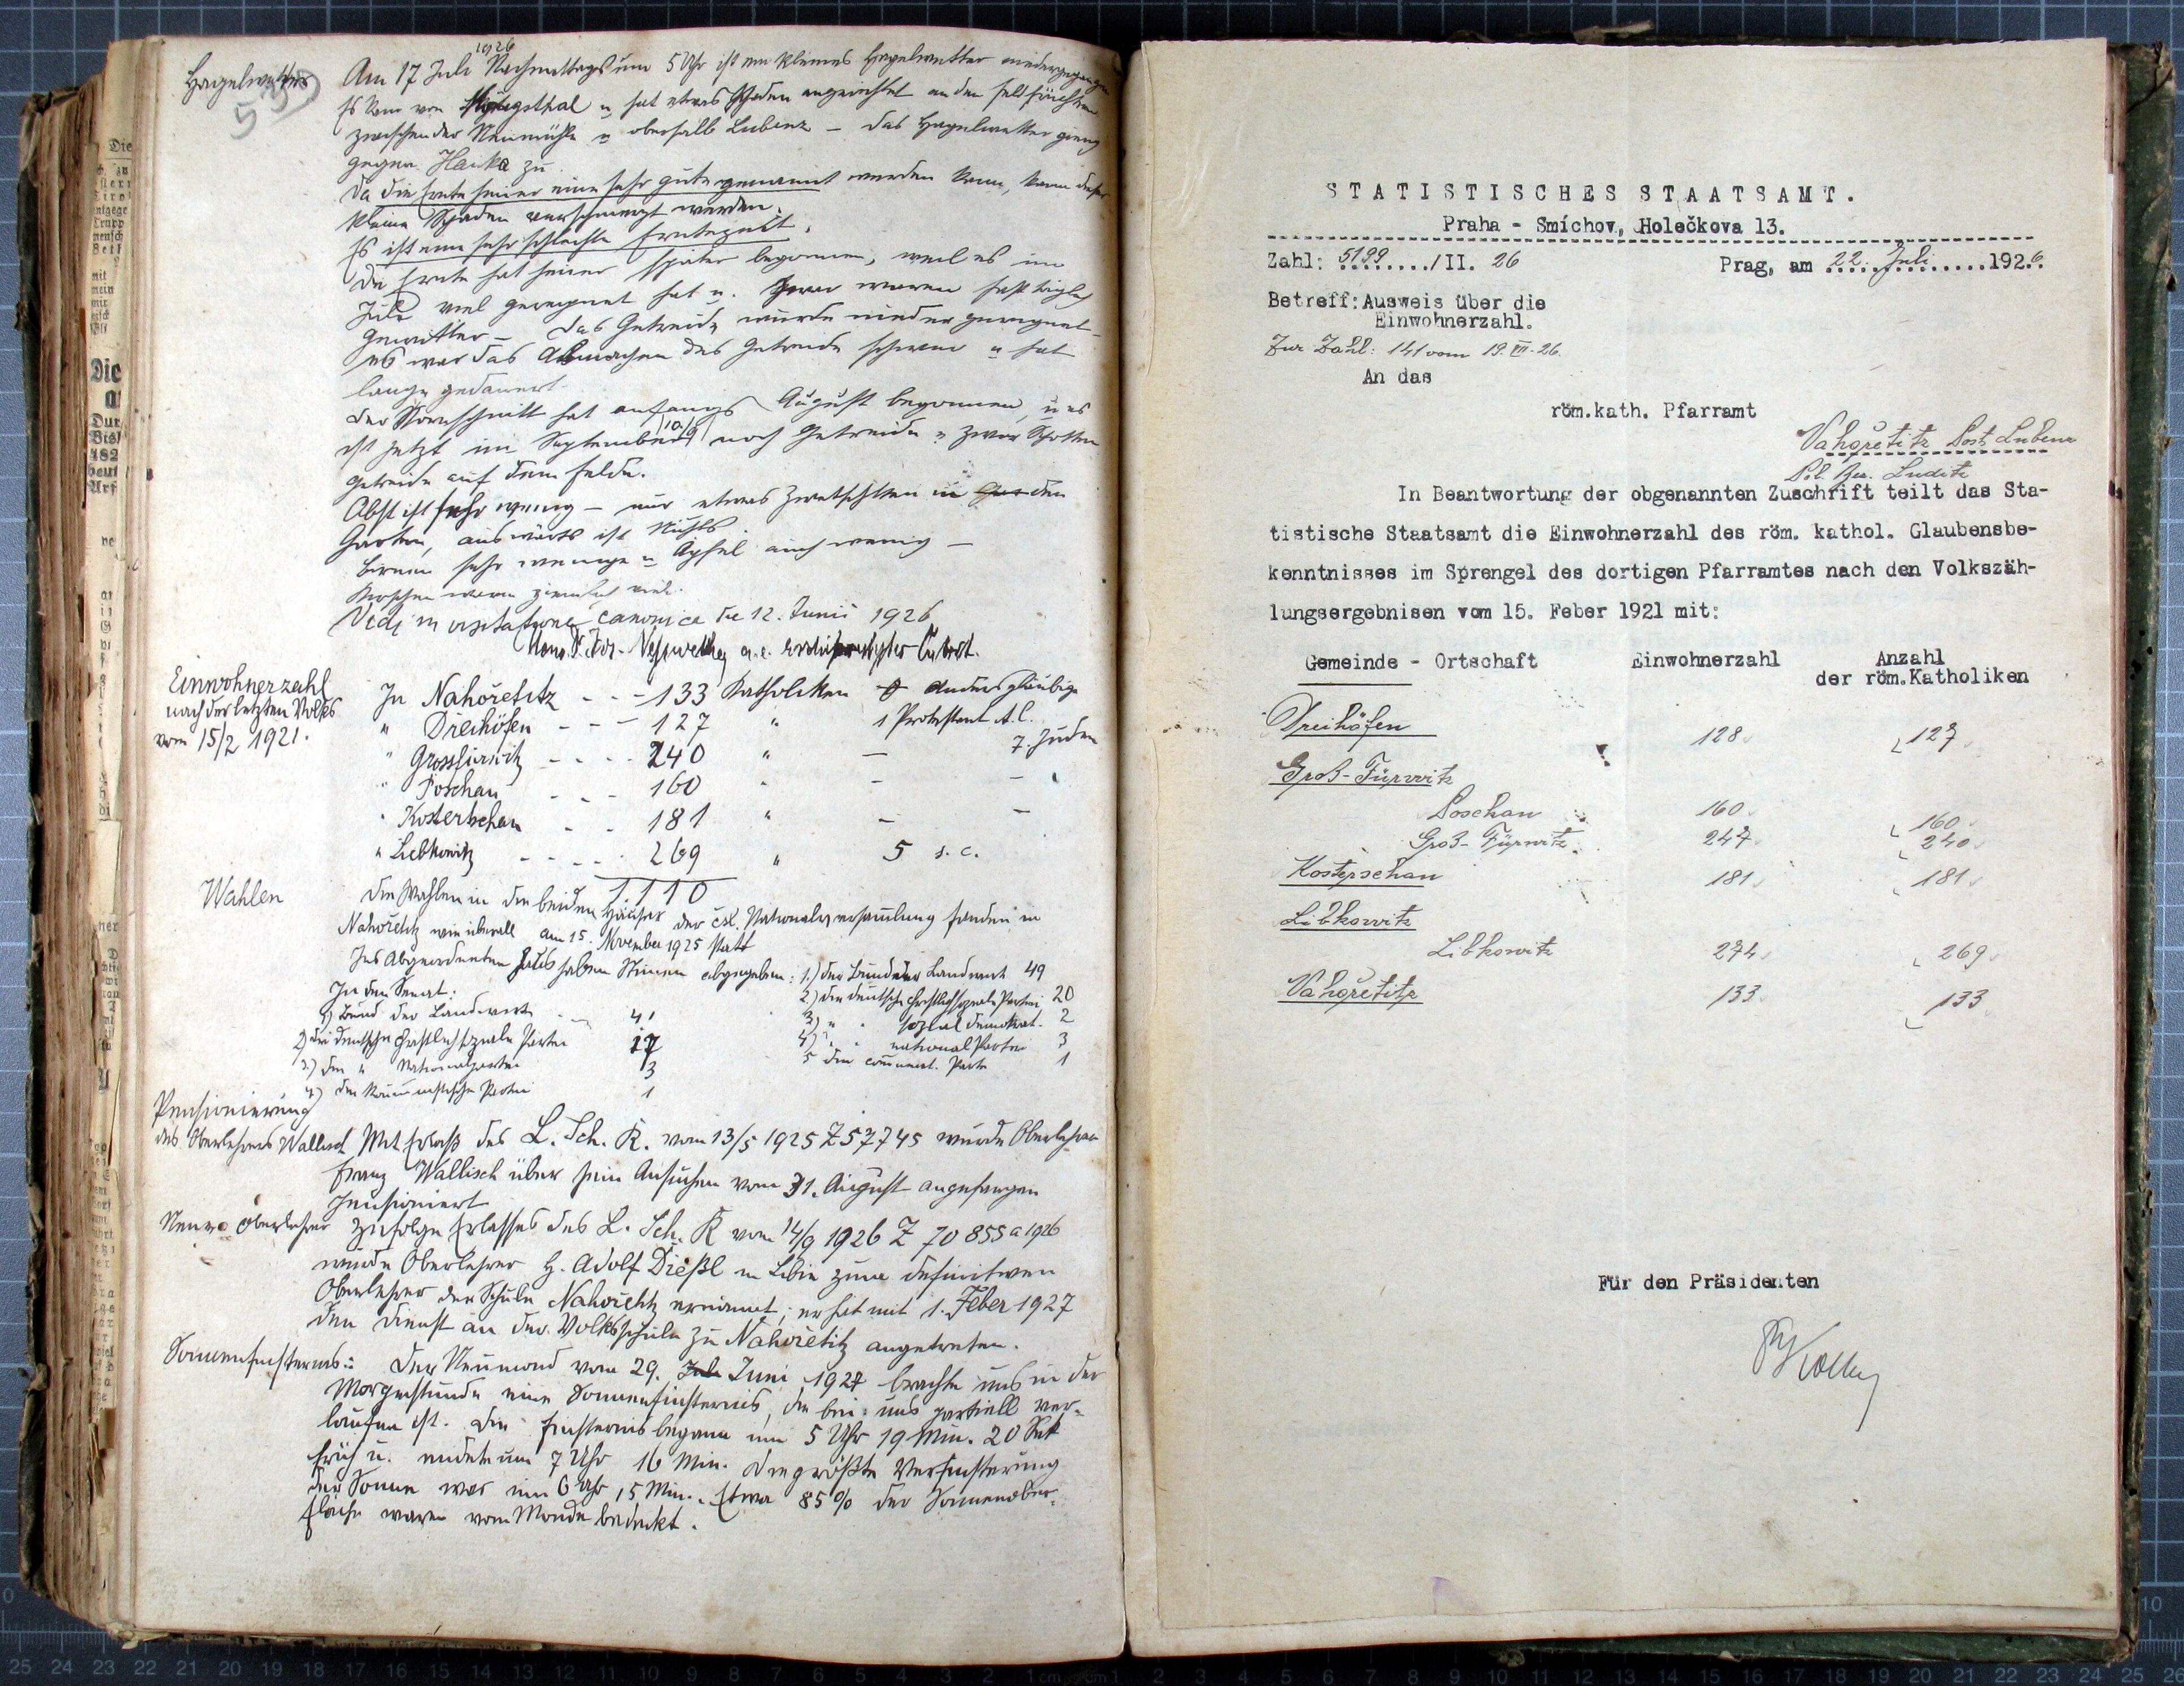 Hagelwetter
539
1926
Am 17 Juli Nachmittags um 5 Uhr ist ein kleines Hagelwetter niedergegangen
Es kam von u hat etwas Schaden angerichtet an den Feldfrüchten
zwischen der Neumühle u oberhalb Lubenz – das Hagelwetter gieng
gegen Hauka zu.
Da die Ernte heuer eine sehr gute genannt werden kann, kann dieser
kleine Schaden verschmerzt werden.
Es ist eine sehr schlechte Erntezeit.
Die Ernte hat heuer später begonnen, weil es im
Juli viel geregnet hat u. zwar waren fast täglich
Gewitter – das Getreide wurde nieder geregnet –
es war das Abmachen des Getreide schwer u hat
lange gedauert.
Der Kornschnitt hat anfangs August begonnen, u es
ist jetzt im September (10/9) noch Getreide u zwar Schotten
getreide auf dem Felde.
Obst ist sehr wenig – nur etwas Zwetschken in den
Garten, auswärts ist Nichts.
Birnen sehr wenige u Äpfel auch wenig –
Kirschen waren ziemlich viel.
Vidi in visitatione canonica die 12. Junii 1926
Einwohnerzahl
nach der letzten Volks
vom 15/2 1921.
In Nahořetitz - - - 133 Katholiken 0 Andersgläubige
" Dreihöfen - - - 127 " 1 Protestant A.C.
" Grossfürwitz - - - - 240 " – 7 Juden
" Poschau - - - 160 " – –
" Kosterschan - - 181 " – –
" Liebkowitz - - - - 269 " 5 s. c.
1110
Wahlen
Die Wahlen in die beiden Häuser der čsl. Nationalversammlung fanden in
Nahořetitz wie überall am 15. November 1925 statt
Ins Abgeordneten Haus haben Stimmen abgegeben: 1.) der Bund der Landwirte 49
2.) die deutsche christlichsoziale Partei 20
3) " " sozialdemokrat. 2
4) " " nationalPartei 3
5 die communist. Partei 1
In den Senat:
1) Bund der Landwirte - - 41
2) die deutsche christlichsoziale Partei 17
3.) die " Nationalpartei 3
4) die kommunistische Partei 1
Pensionierung
des Oberlehrers Wallisch
Mit Erlaß des L. Sch. R. vom 13/5 1925 Z 57745 wurde Oberlehrer
Franz Wallisch über sein Ansuchen vom 31. August angefangen
pensioniert
Neuer Oberlehrer
Zufolge Erlasses des L. Sch. R vom 14/9 1926 Z 70855 a 1926
wurde Oberlehrer H. Adolf Dießl in Libin zum definitiven
Oberlehrer der Schule Nahořetitz ernannt; er hat mit 1. Feber 1927
den Dienst an der Volksschule zu Nahořetitz angetreten.
Sonnenfinsternis:
Der Neumond vom 29. Juli Juni 1927 brachte uns in der
Morgenstunde eine Sonnenfinsternis, die bei uns partiell ver-
laufen ist. Die Finsternis begann um 5 Uhr 19 Min. 20 Sek
früh u. endete um 7 Uhr 16 Min. Die größte Verfinsterung
der Sonne war um 6 Uhr 15 Min. Etwa 85% der Sonnenober-
fläche waren vom Monde bedeckt.
STATISTISCHES STAATSAMT.
Praha - Smíchov, Holečkova 13.
Zahl: 5199 /II. 26 Prag, am 22. Juli 1926.
Betreff: Ausweis über die
Einwohnerzahl.
Zur Zahl: 141 vom 19. VII. 26.
An das
röm.kath. Pfarramt
Nahořetitz Post Lubenz
Pol. Bez. Luditz
In Beantwortung der obgenannten Zuschrift teilt das Sta-
tistische Staatsamt die Einwohnerzahl des röm. kathol. Glaubensbe-
kenntnisses im Sprengel des dortigen Pfarramtes nach den Volkszäh-
lungsergebnisen vom 15. Feber 1921 mit:
Gemeinde - Ortschaft Einwohnerzahl Anzahl
der röm.Katholiken
Dreihöfen 128 127
Groß-Fürwitz
Poschau 160 160
Groß-Fürwitz 247 240
Kosterschan 181 181
Libkowitz
Libkowitz 274 269
Nahořetitz 133 133
Für den Präsidenten